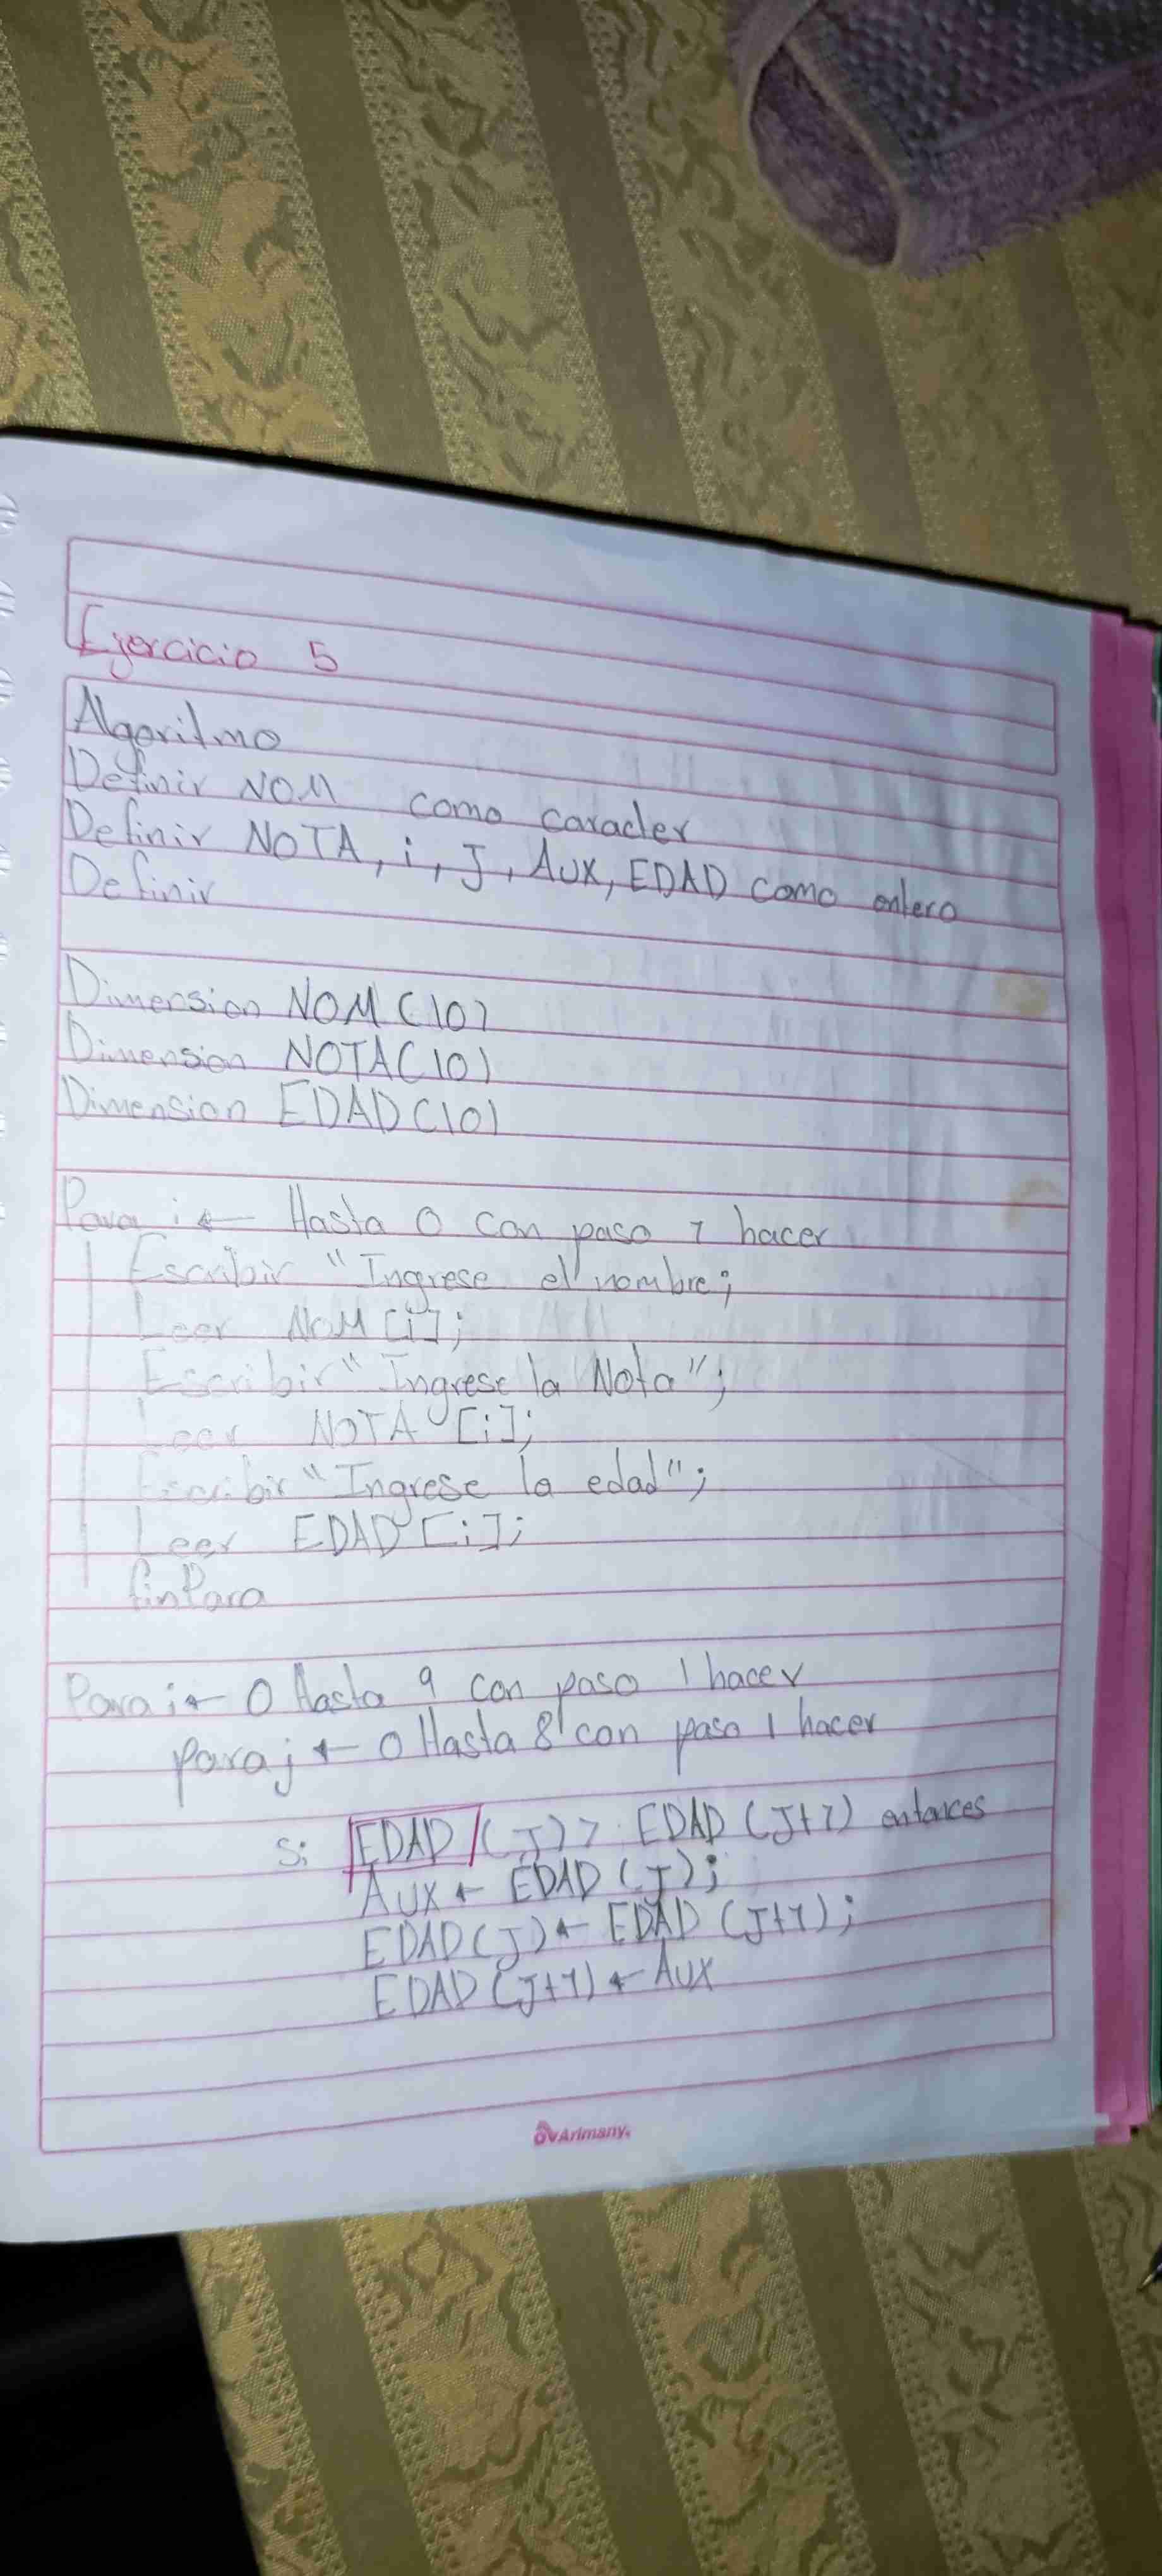 Ejercicio 5
Algoritmo
Definir NOM como caracter
Definir NOTA, i, J, AUX, EDAD como entero
Definir
Dimension NOM(10)
Dimension NOTA(10)
Dimension EDAD(10)
Para i ← Hasta 0 con paso 1 hacer
Escribir "Ingrese el nombre;
Leer NOM [i];
Escribir "Ingrese la Nota";
Leer NOTA [i];
Escribir "Ingrese la edad";
Leer EDAD [i];
finPara
Para i ← 0 Hasta 9 con paso 1 hacer
para j ← 0 Hasta 8 con paso 1 hacer
Si EDAD (J) > EDAD (J+1) entonces
AUX ← EDAD (J);
EDAD (J) ← EDAD (J+1);
EDAD (J+1) ← AUX
Arimany.